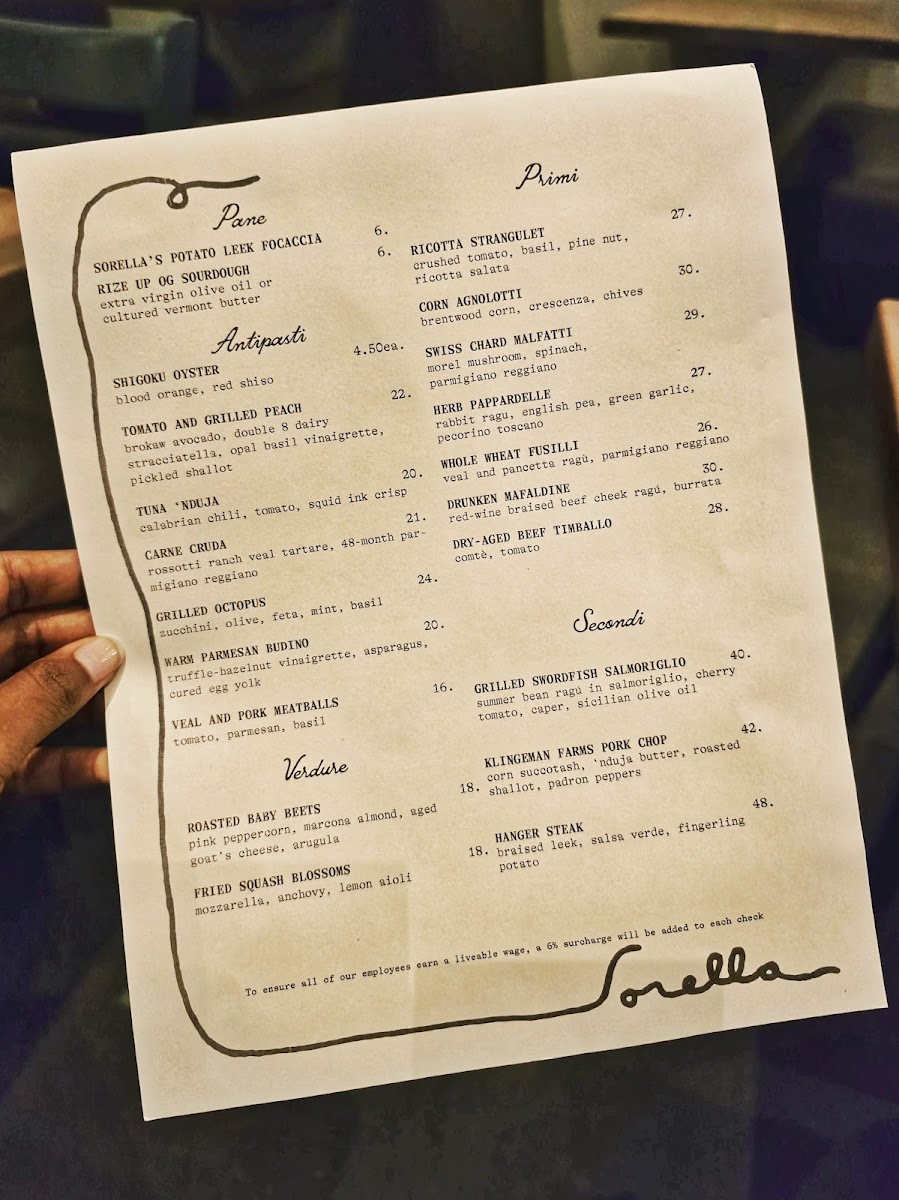 Pane
SORELLA'S POTATO LEEK FOCACCIA 6.
RIZE UP OG SOURDOUGH 6.
extra virgin olive oil or
cultured vermont butter
Antipasti
SHIGOKU OYSTER 4.50ea.
blood orange, red shiso
TOMATO AND GRILLED PEACH 22.
brokaw avocado, double 8 dairy
stracciatella, opal basil vinaigrette,
pickled shallot
TUNA 'NDUJA 20.
calabrian chili, tomato, squid ink crisp
CARNE CRUDA 21.
rossotti ranch veal tartare, 48-month par-
migiano reggiano
GRILLED OCTOPUS 24.
zucchini, olive, feta, mint, basil
WARM PARMESAN BUDINO 20.
truffle-hazelnut vinaigrette, asparagus,
cured egg yolk
VEAL AND PORK MEATBALLS 16.
tomato, parmesan, basil
Verdure
ROASTED BABY BEETS 18.
pink peppercorn, marcona almond, aged
goat's cheese, arugula
FRIED SQUASH BLOSSOMS 18.
mozzarella, anchovy, lemon aioli
Primi
RICOTTA STRANGULET 27.
crushed tomato, basil, pine nut,
ricotta salata
CORN AGNOLOTTI 30.
brentwood corn, crescenza, chives
SWISS CHARD MALFATTI 29.
morel mushroom, spinach,
parmigiano reggiano
HERB PAPPARDELLE 27.
rabbit ragu, english pea, green garlic,
pecorino toscano
WHOLE WHEAT FUSILLI 26.
veal and pancetta ragù, parmigiano reggiano
DRUNKEN MAFALDINE 30.
red-wine braised beef cheek ragú, burrata
DRY-AGED BEEF TIMBALLO 28.
comtè, tomato
Secondi
GRILLED SWORDFISH SALMORIGLIO 40.
summer bean ragú in salmoriglio, cherry
tomato, caper, sicilian olive oil
KLINGEMAN FARMS PORK CHOP 42.
corn succotash, 'nduja butter, roasted
shallot, padron peppers
HANGER STEAK 48.
braised leek, salsa verde, fingerling
potato
To ensure all of our employees earn a liveable wage, a 6% surcharge will be added to each check
Sorella